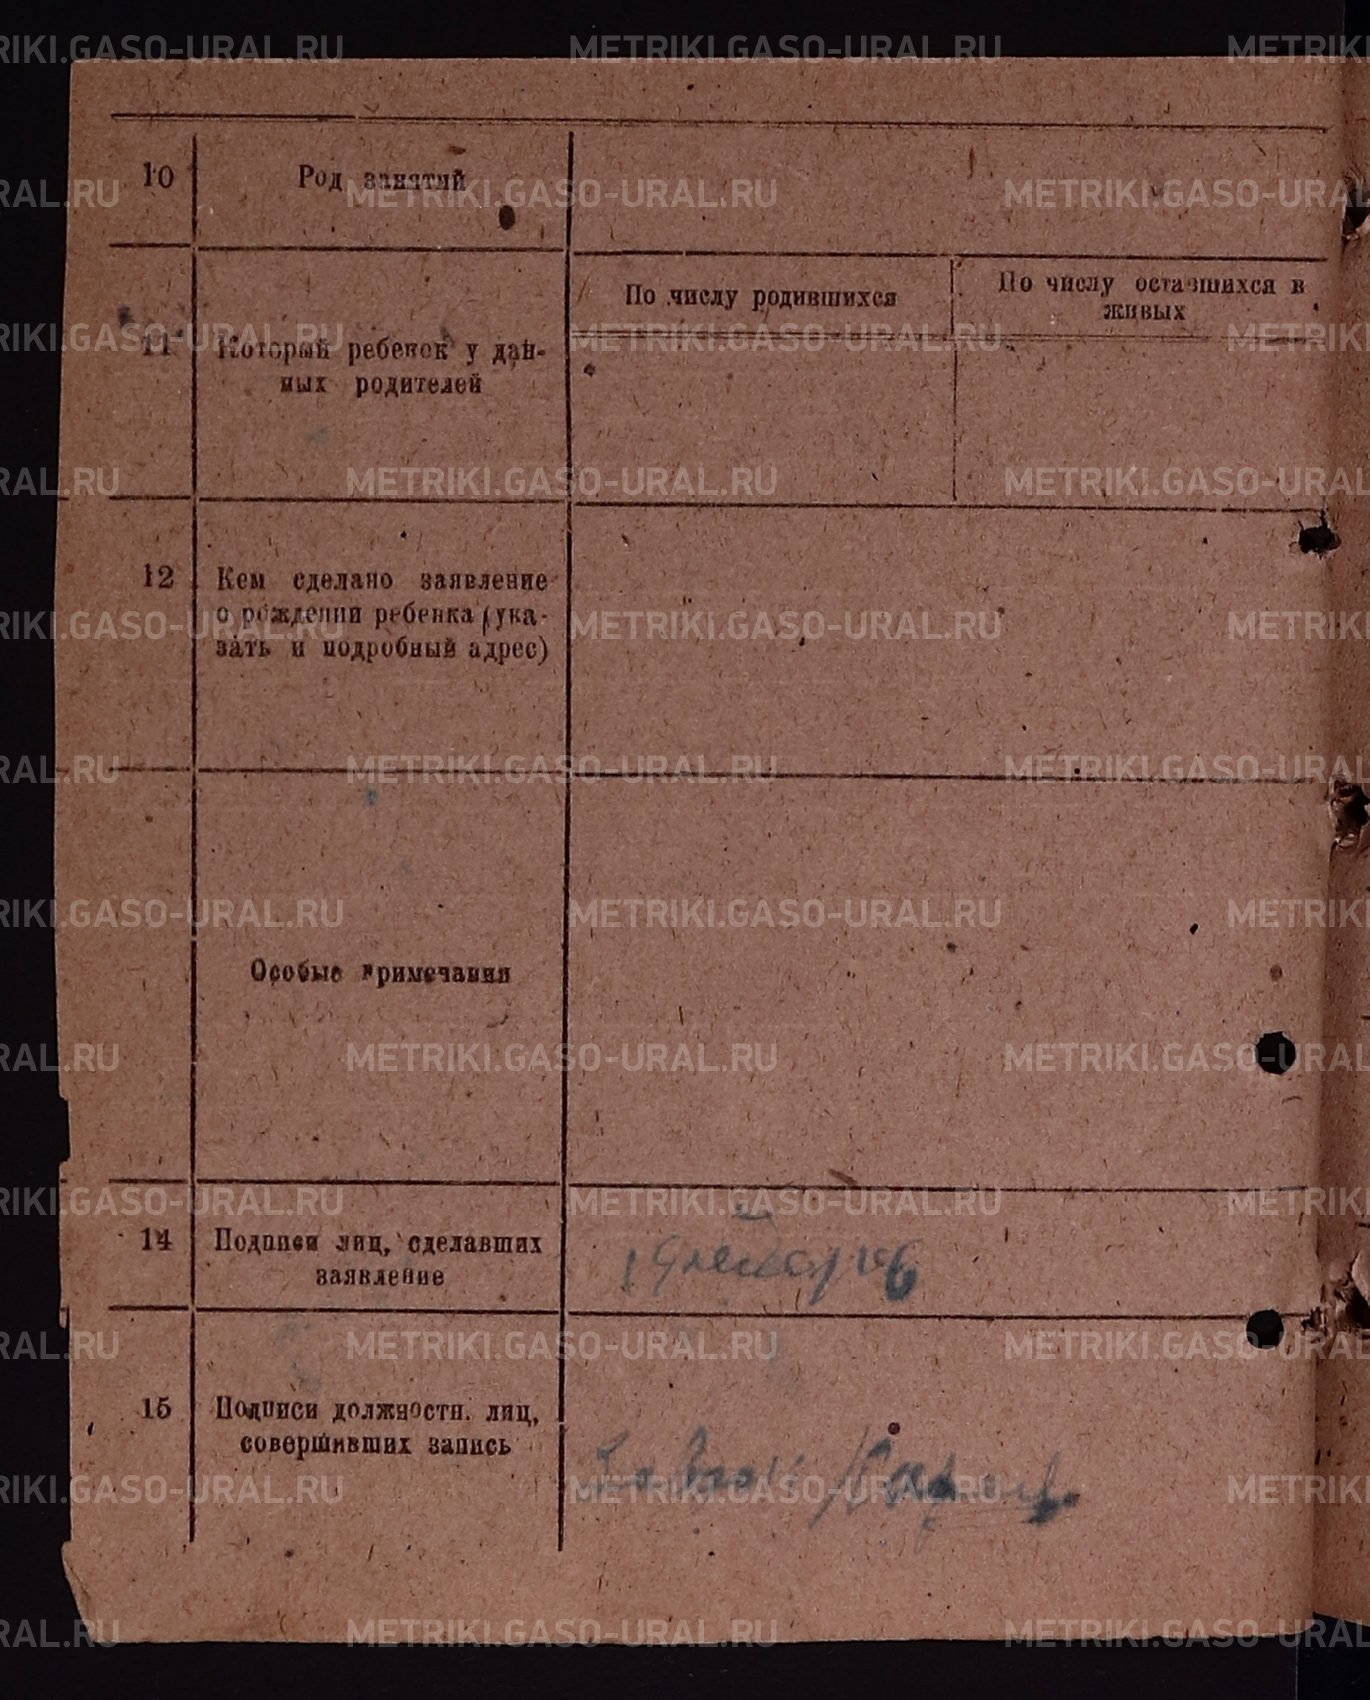 10 Род занятий
По числу родившихся
По числу оставшихся в
живых
11 Который ребенок у дан-
ных родителей
12 Кем сделано заявление
о рождении ребенка (ука-
зать и подробный адрес)
Особые примечания
14 Подписи лиц, сделавших
заявление
15 Подписи должностн. лиц,
совершивших запись
METRIKI.GASO-URAL.RU